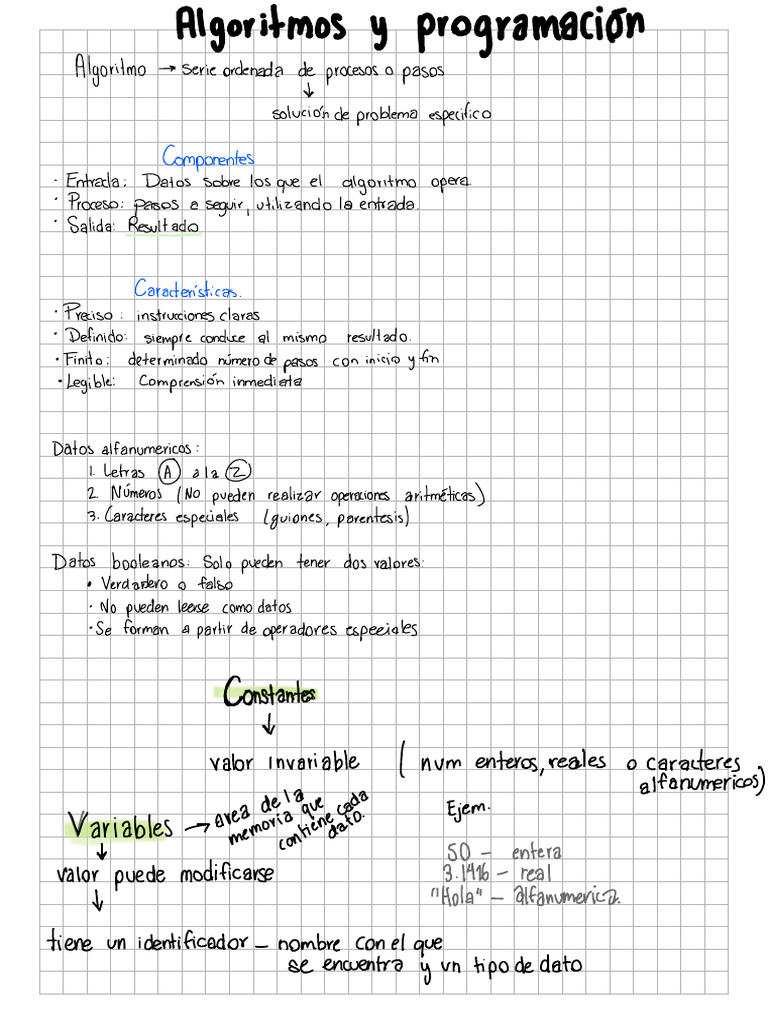 Algoritmos y programación
Algoritmo → serie ordenada de procesos o pasos
↓
solución de problema especifico
Componentes
· Entrada: Datos sobre los que el algoritmo opera.
· Proceso: pasos a seguir, utilizando la entrada.
· Salida: Resultado
Características.
· Preciso: instrucciones claras
· Definido: siempre conduce al mismo resultado.
· Finito: determinado número de pasos con inicio y fin
· Legible: Comprensión inmediata
Datos alfanumericos:
1. Letras A a la Z
2. Números (No pueden realizar operaciones aritméticas)
3. Caracteres especiales (guiones, parentesis)
Datos booleanos: Solo pueden tener dos valores:
• Verdadero o falso
· No pueden leerse como datos
· Se forman a partir de operadores especiales
Constantes
↓
valor invariable (num enteros, reales o caracteres
alfanumericos)
Variables → area de la
memoria que
contiene cada
dato.
↓
valor puede modificarse
↓
Ejem.
50 – entera
3.1416 – real
"Hola" – alfanumerica.
tiene un identificador – nombre con el que
se encuentra y un tipo de dato